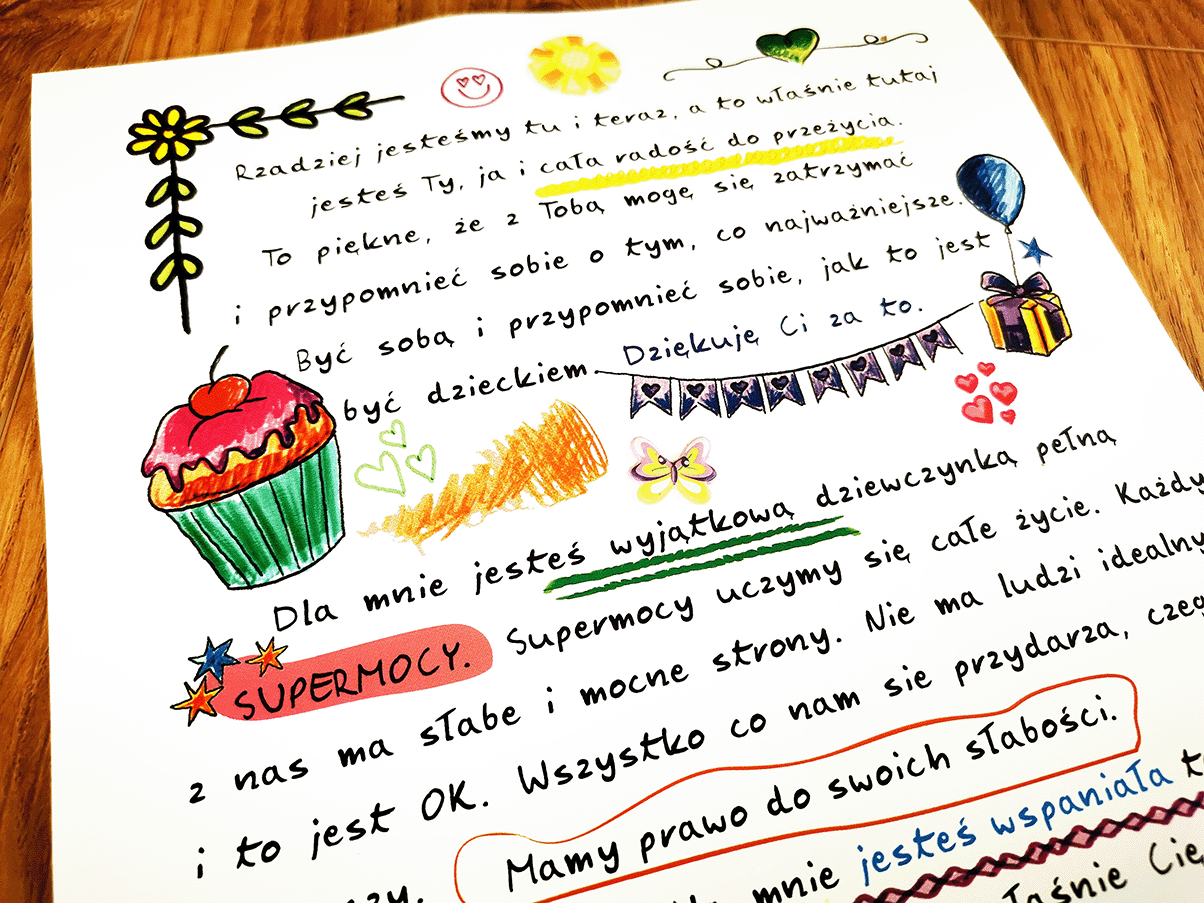 Rzadziej jesteśmy tu i teraz, a to właśnie tutaj
jesteś Ty, ja i cała radość do przeżycia.
To piękne, że z Tobą mogę się zatrzymać
i przypomnieć sobie o tym, co najważniejsze.
Być sobą i przypomnieć sobie, jak to jest
być dzieckiem. Dziękuję Ci za to.
Dla mnie jesteś wyjątkową dziewczynką pełną
SUPERMOCY. Supermocy uczymy się całe życie. Każdy
z nas ma słabe i mocne strony. Nie ma ludzi idealny
i to jest OK. Wszystko co nam sie przydarza, czeg
Mamy prawo do swoich słabości.
mnie jesteś wspaniała
Cię